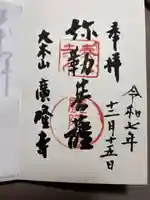 奉拝
令和七年
十二月十五日
弥勒菩薩
大本山
廣隆寺